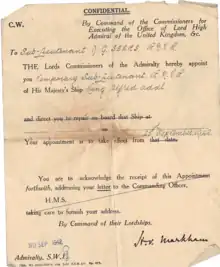 CONFIDENTIAL.
C.W.
By Command of the Commissioners for
Executing the Office of Lord High
Admiral of the United Kingdom, &c.
To Sub-Lieutenant J. G.
THE Lords Commissioners of the Admiralty hereby appoint
you Temporary Sub-Lieutenant
of His Majesty's Ship King Alfred addl
and direct you to repair on board that Ship at
Your appointment is to take effect from that date.
You are to acknowledge the receipt of this Appointment
forthwith, addressing your letter to the Commanding Officer,
H.M.S.
taking care to furnish your address.
By Command of their Lordships.
Markham
Admiralty, S.W.1